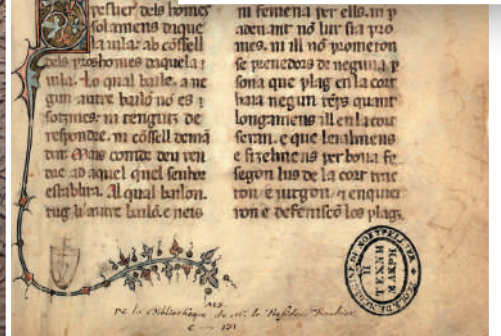 pestier dels homes
solamens di que
la uila: ab cossell
dels proshomes daquela
uila. Lo qual baile. a ne
gun autre bailo no es
somes: ni tengutz de
respondre. ni cossell demā
dar. Mas comte deu ren
dre ad aquel quel senhor
establira. Al qual bailon.
tug li autre bailō. e neis
ni femena per ells. ni p
adenant nō lur sia pro
mes. ni ill nō promeron
se prenedors de neguna p
sona que plag en la cort
haia negun tēps quant
longamens ill en la cort
seran. e que leialmens
e fizelmens per bona fe
segon l us de la cort trac
ton e iutgon. e enquei
ron e defenisco los plags.
De la Bibliothèque de Mr. le President Bouhier.
MS.
C — 131
ECOLE DE MEDECINE DE MONTPELLIER